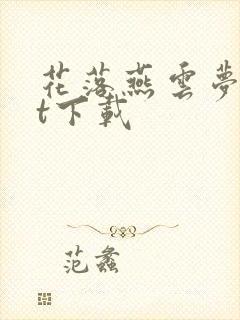 花落燕雲夢
t下載
范蠡